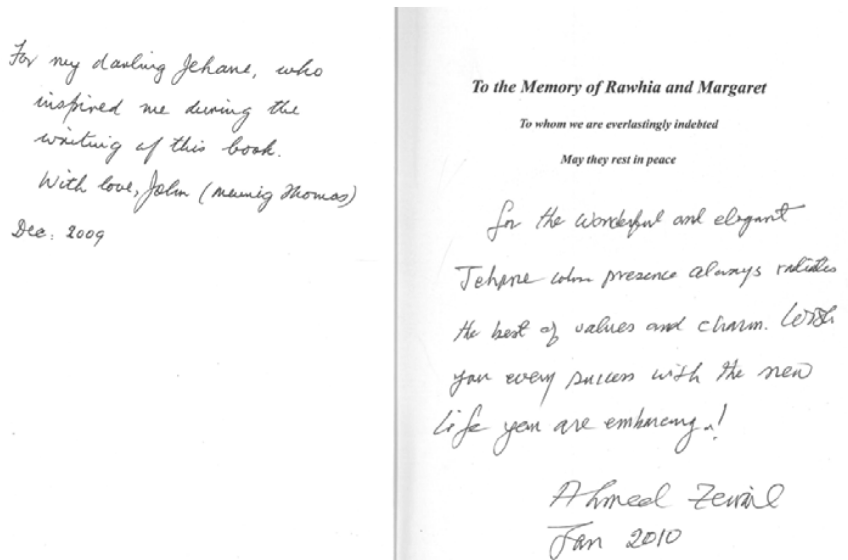 For my darling Jehane, who
inspired me during the
writing of this book.
With love, John (Meurig Thomas)
Dec. 2009
To the Memory of Rawhia and Margaret
To whom we are everlastingly indebted
May they rest in peace
for the wonderful and elegant
Jehane whose presence always radiates
the best of values and charm. Wish
you every success with the new
life you are embracing!
Ahmed Zewail
Jan 2010